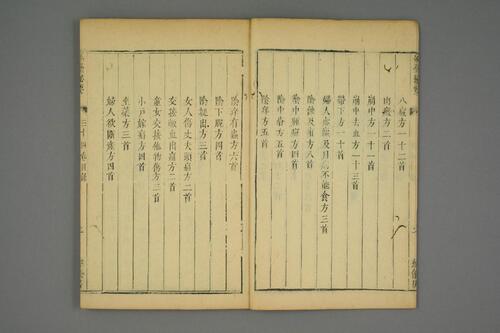 八瘕方一十二首
崩中方一十一首
崩中去血方一十三首
帶下方一十首
陰蝕及瘡方八首
陰中腫痛方四首
陰中痒方五首
陰痒方五首
陰痒有蟲方六首
陰下脫方四首
陰挺出方三首
女人傷丈夫頭痛方二首
交接輒血出痛方二首
童女交接他物傷方三首
小戶嫁痛方四首
坐藥方三首
婦人欲斷産方四首
三十四卷目錄